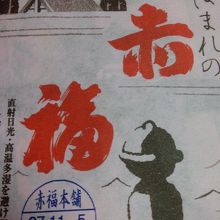 まれの
赤福
直射日光・高温多湿を避け
赤福本舗
27.11.-5